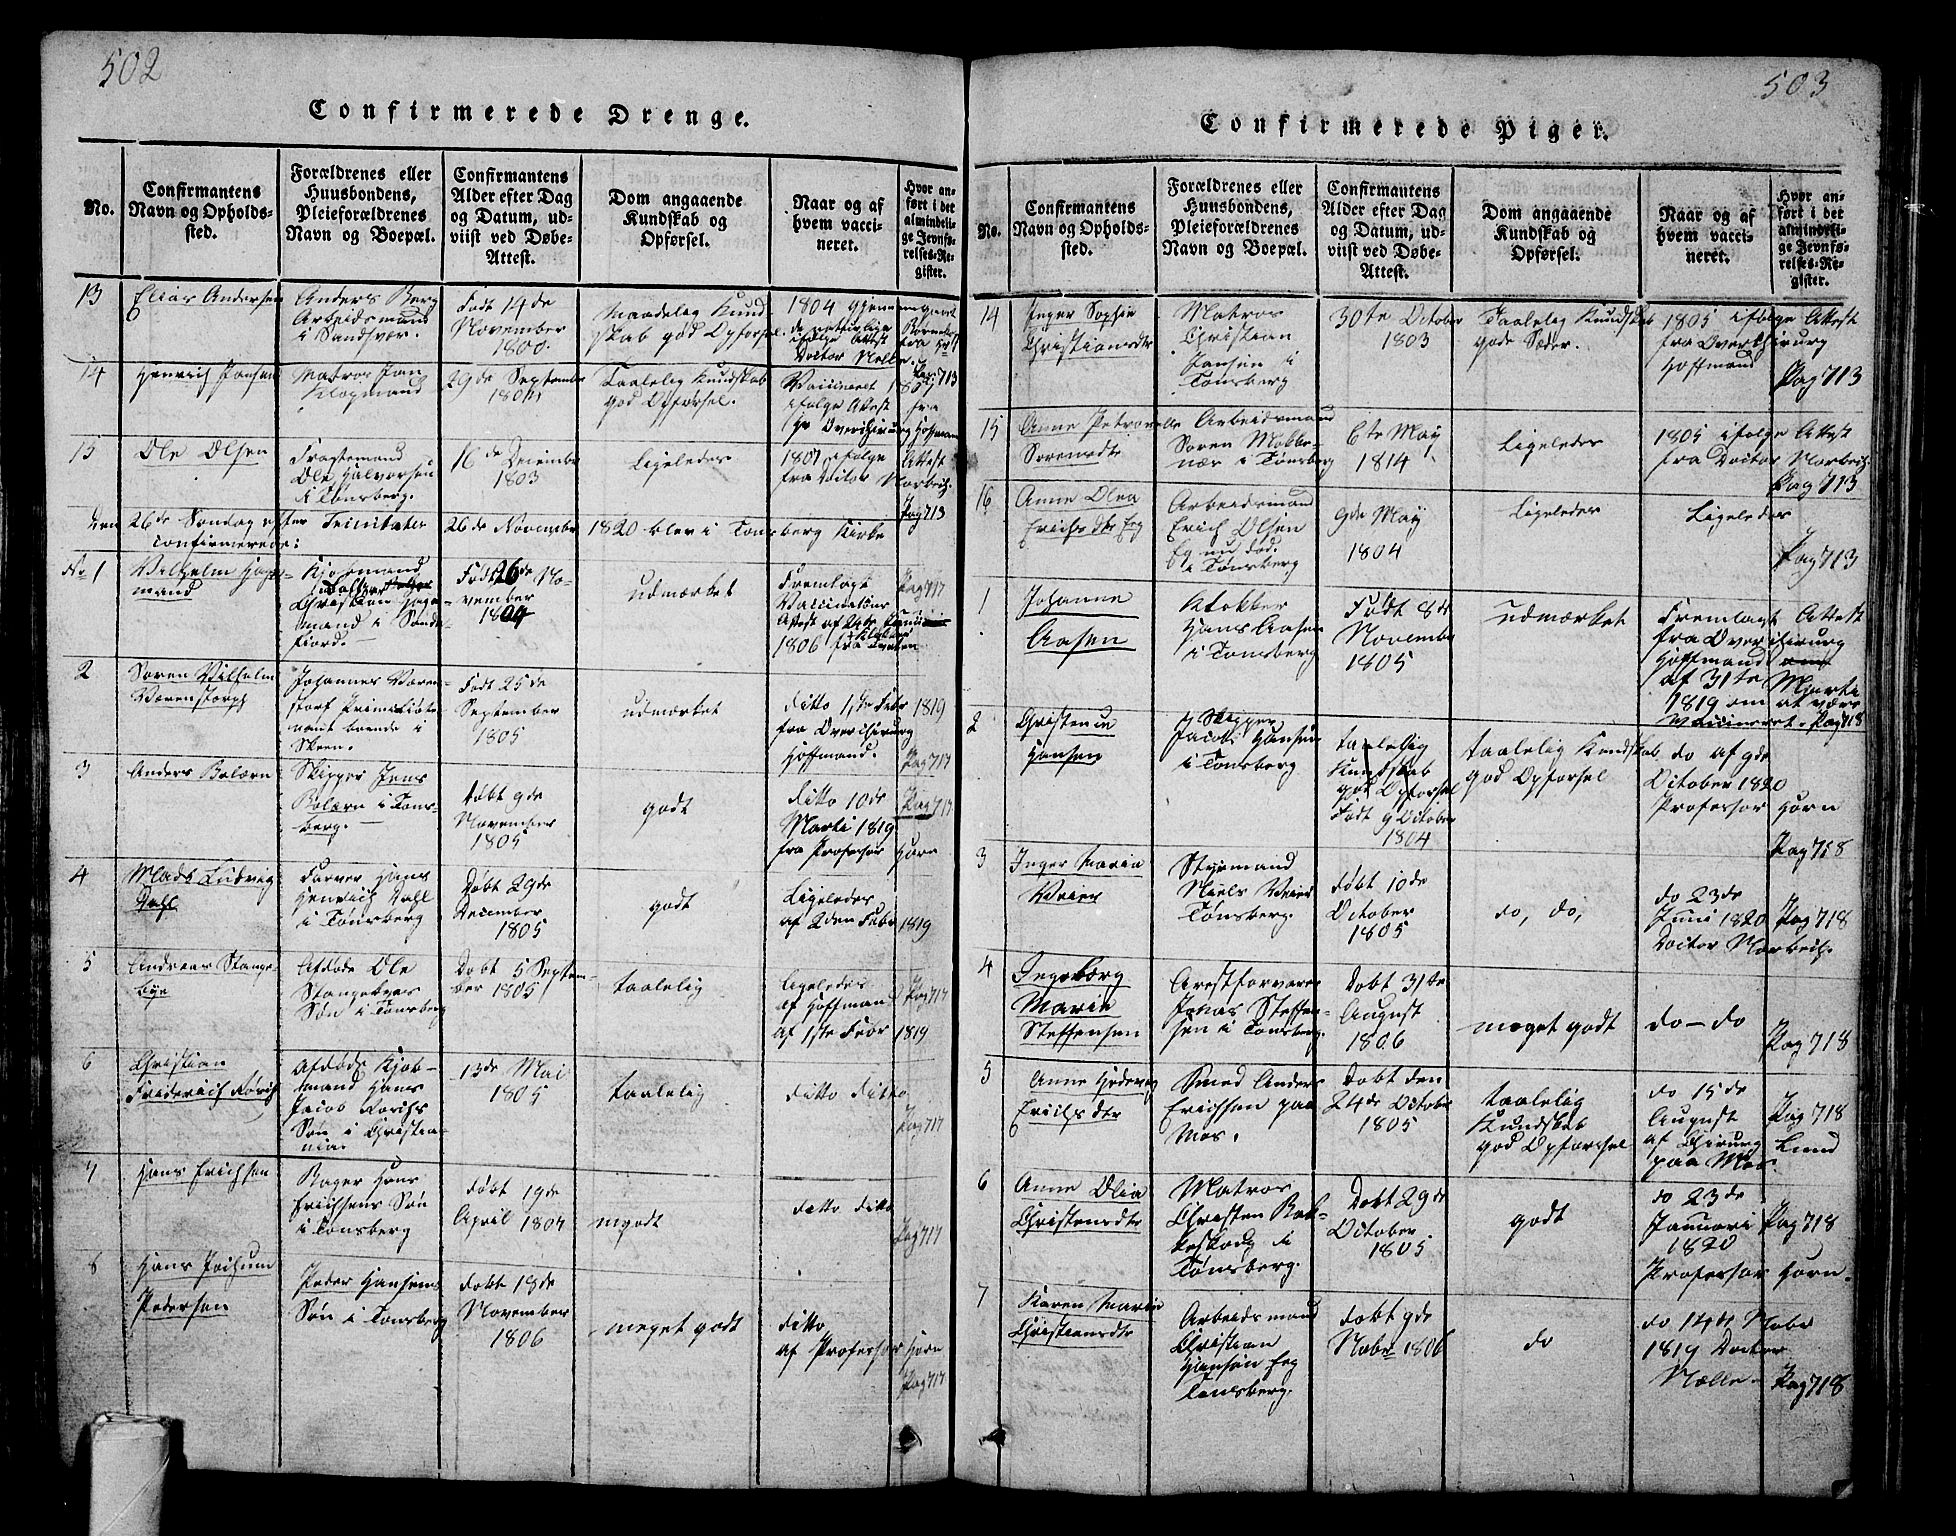 502
Confirmerede Drenge.
No.
Confirmantens Navn og Opholdssted.
Forældrenes eller Huusbondens, Pleieforældrenes Navn og Boepæl.
Confirmantens Alder efter Dag og Datum, udviist ved Døbe-Attest.
Dom angaaende Kundskab og Opførsel.
Naar og af hvem vaccineret.
Hvor anført i det almindelige Jevnførelses-Register.
13
Elias Andersen
Anders Berg
Arbeidsmand
i Sandsvær.
Født 14de
November
1800.
Maadelig Kund
skab god Opførsel
1804
Doctor Nelle.
Pag 713
14
Henrich Jansen
Matros Jan
Klopmand
29de September
1804
Taalelig Kundskab
god Opførsel.
Vaccineret 1805
ifølge Attest
fra
Overchirurg Hoffman
15
Ole Olsen
Fragtemand
Ole Halvorsen
i Tonsberg.
16de Decembr
1803
Ligeledes
1801 ifølge Attest
fra Doctor Norbech.
Pag 713
Den 26de Søndag efter Trinitatis 26de November 1820 blev i Tonsberg Kirke
confirmerede:
No 1
Vilhelm Haga-
mand
Kjøbmand
Christian Haga-
mand i Sande-
fiord.
Født 26de No-
vember
1804
udmærket
Fremlagt
Vaccinations
Attest af 24de
1806 fra
Pag 717
2
Soren Vilhelm
Værenstorph
Johannes Væren-
storf Premieliute-
nant boende i
Skeen.
Født 25de
September
1805
udmærket
ditto 1ste Febr 1819
fra Overchirurg
Hoffmand.
Pag 717
3
Anders Bolærn
Skipper Jens
Bolærn i Tons-
berg.
Døbt 9de
November
1805
godt
ditto 10de
Marti 1819
fra Professor Horn
Pag 717
4
Mads Ludvig
Dahl
Farver Hans
Henrich Dahl
i Tonsberg
Døbt 29de
December
1805
godt
Ligeledes
af 2den Febr 1819
5
Andreas Stange-
bye
Afdøde Ole
Stangebyes
Søn i Tonsberg
Døbt 5 Septem-
ber 1805
taalelig
Ligeledes
af Hoffman
af 1ste Febr 1819
Pag 717
6
Christian
Friderich Borch
Afdøde Kjøb-
mand Hans
Jacob Borchs
Søn i Christia-
nia.
13de Mai
1805
taalelig
ditto ditto
Pag 717
7
Hans Erichsen
Bager Hans
Erichsens Søn
i Tonsberg
døbt 19de
April 1804
mgodt
ditto ditto
Pag 717
8
Hans Jochum
Pedersen
Peder Hansens
Søn i Tonsberg
døbt 18de
November
1806
meget godt
ditto
af Professor Horn
Pag 717
503
Confirmerede Piger.
No.
Confirmantens Navn og Opholdssted.
Forældrenes eller Huusbondens, Pleieforældrenes Navn og Boepæl.
Confirmantens Alder efter Dag og Datum, udviist ved Døbe-Attest.
Dom angaaende Kundskab og Opførsel.
Naar og af hvem vaccineret.
Hvor anført i det almindelige Jevnførelses-Register.
14
Inger Sophie
Christiansdtr
Matros
Christian
Jansen i
Tonsberg
30te October
1803
Taalelig Kundskab
gode Sæder.
1805 ifølge Attest
fra Overchirurg
Hoffmand
Pag 713
15
Anne Petronelle
Sorensdtr
Arbeidsmand
Soren Møkke-
næs i Tonsberg
6te May
1814
Ligeledes
1805 ifølge Attest
fra Doctor Norbech.
Pag 713
16
Anne Olea
Erichsdtr Eg
Arbeidsmand
Erich Olsen
Eg nu død.
i Tonsberg
9de May
1804
Ligeledes
Ligeledes
Pag 713
1
Johanne
Aasen
Klokker
Hans Aasen
i Tonsberg
Født 8de
Novembr
1805
udmærket
Fremlagt Attest
fra Overchirurg
Hoffmand
af 31te Marti
1819 om at være
vaccineret. Pag 718
2
Christence
Hansen
Skipper
Jacob Hansen
i Tonsberg
taalelig
Kundskab
god Opførsel
Født 9 October
1804
taalelig Kundskab
god Opførsel
do af 9de
October 1820
Professor Horn
Pag 718
3
Inger Maria
Weier
Styrmand
Niels Weier
Tønsberg.
døbt 10de
October
1805
do, do,
do 23de
Juni 1820
Doctor Norbech.
Pag 718
4
Ingeborg
Marie
Steffensen
Arestforvarer
Jonas Steffen-
sen i Tonsberg.
Døbt 31te
August
1806
meget godt
do - do
Pag 718
5
Anne Hedevig
Erichsdtr
Smed Anders
Erichsen paa
Mos.
Døbt den
24de October
1805
taalelig
Kundskab
god Opførsel
do 15de
August
af Chirurg Lund
paa Mos
Pag 718
6
Anne Olia
Christensdtr
Matros
Christen Bak-
keskoug i
Tønsberg.
Døbt 29de
October
1805
godt
do 23de
Januari
1820
Professor Horn.
Pag 718
7
Karen Marie
Christiansdtr
Arbeidsmand
Christian
Hansen Eeg
Tonsberg.
døbt 9de
Nobr 1806
do
do 14de Nobr
1819 Doctor
Nelle.
Pag 718